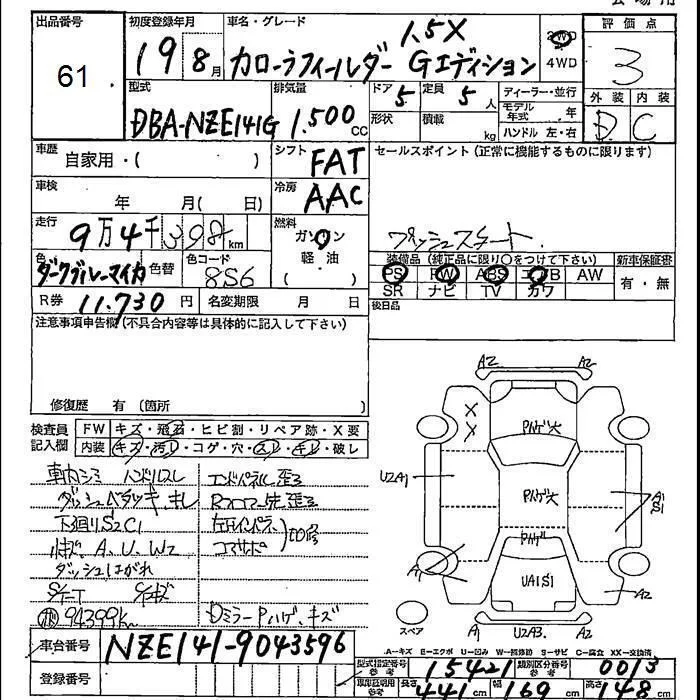 出品番号 初度登録年月 車名・グレード 評価点
61 19 8月 カローラフィールダー 1.5X Gエディション 2WD 4WD 3
型式 排気量 ドア 5 定員 5人 ディーラー・並行 外装 内装
DBA-NZE141G 1.500cc 形状 積載 kg モデル年式 年 D C
ハンドル 左・右
車歴 自家用・( ) シフト FAT セールスポイント(正常に機能するものに限ります)
車検 年 月( 日) 冷房 AAC
走行 9万4千398km 燃料 ガソリン 軽・油 ( ) プッシュスタート
色 ダークブルーマイカ 色替 色コード 8S6 装備品(純正品に限り○をつけて下さい) 新車保証書
PS PW ABS エアB AW 有・無
R券 11.730円 名変期限 月 日 SR ナビ TV カワ
注意事項申告欄(不具合内容等は具体的に記入して下さい) 後日品
修復歴 有 (箇所 )
検査員記入欄 FW キズ・飛石・ヒビ割・リペア跡・X要
内装 キズ・汚レ・コゲ・穴・スレ・キレ・破レ
ハンドルスレ エンドパネル歪
下廻りS2C1
小キズ、A、U、W2
ダッシュはがれ
シート
94399km Dミラー Pハゲ、キズ
A2 A2
X
X
Pハゲ大
U2A1 Pハゲ大 A1 S1
Pハゲ
A1 UA1S1 A2
スペア A1 U2A3. A2
A-キズ E-エクボ U-凹み W-補修跡 S-サビ C-腐食 XX-交換済
車台番号 NZE141-9043596
登録番号
型式指定番号 参考 15421 類別区分番号 参考 0013
参考 長さ 441cm 幅 169cm 高さ 148cm